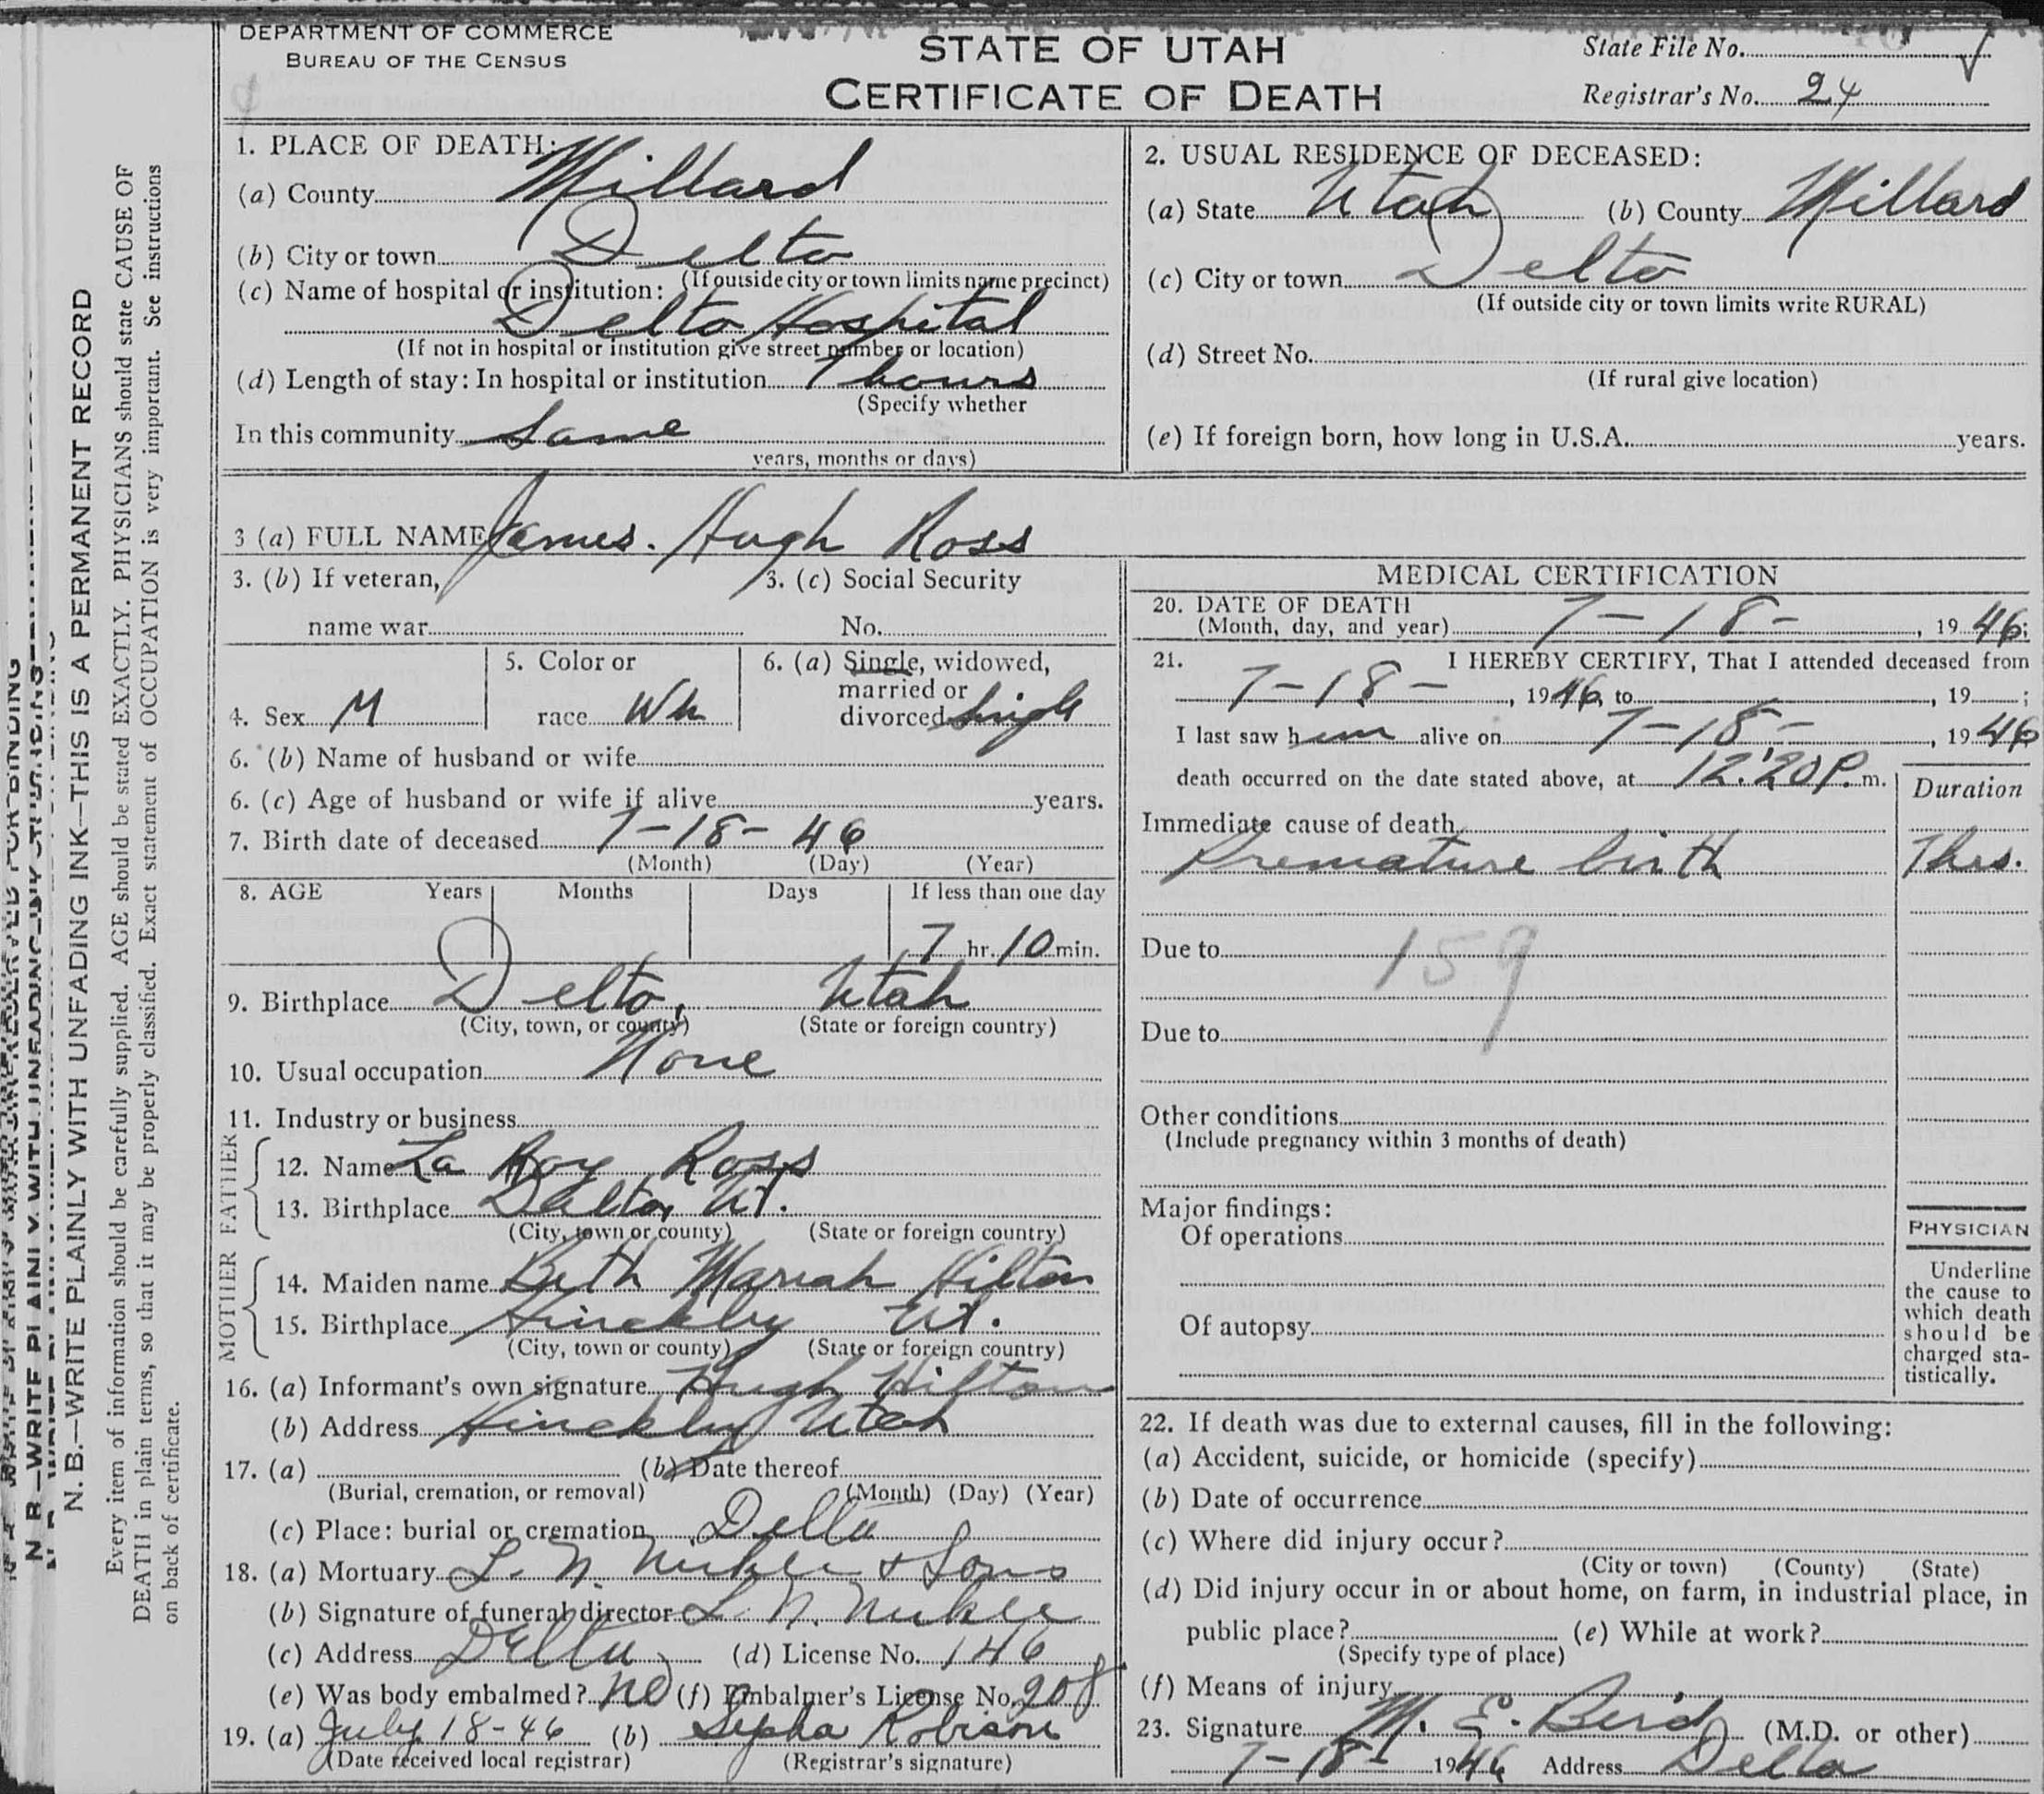 DEPARTMENT OF COMMERCE
BUREAU OF THE CENSUS
STATE OF UTAH
CERTIFICATE OF DEATH
State File No.
Registrar's No. 24
N. B.—WRITE PLAINLY WITH UNFADING INK—THIS IS A PERMANENT RECORD
Every item of information should be carefully supplied. AGE should be stated EXACTLY. PHYSICIANS should state CAUSE OF
DEATH in plain terms, so that it may be properly classified. Exact statement of OCCUPATION is very important. See instructions
on back of certificate.
1. PLACE OF DEATH:
(a) County Millard
(b) City or town Delta
(If outside city or town limits name precinct)
(c) Name of hospital or institution:
Delta Hospital
(If not in hospital or institution give street number or location)
(d) Length of stay: In hospital or institution 7 hours
(Specify whether
In this community Same
years, months or days)
2. USUAL RESIDENCE OF DECEASED:
(a) State Utah (b) County Millard
(c) City or town Delta
(If outside city or town limits write RURAL)
(d) Street No.
(If rural give location)
(e) If foreign born, how long in U.S.A. years.
3 (a) FULL NAME James. Hugh Ross
3. (b) If veteran,
name war
3. (c) Social Security
No.
4. Sex M
5. Color or
race Wh
6. (a) Single, widowed,
married or
divorced Single
6. (b) Name of husband or wife
6. (c) Age of husband or wife if alive years.
7. Birth date of deceased 7-18-46
(Month) (Day) (Year)
8. AGE Years Months Days If less than one day
7 hr. 10 min.
9. Birthplace Delta, Utah
(City, town, or county) (State or foreign country)
10. Usual occupation None
11. Industry or business
FATHER
12. Name La Roy Ross
13. Birthplace Delta, Ut.
(City, town or county) (State or foreign country)
MOTHER
14. Maiden name Beth Mariah Hilton
15. Birthplace Hinckley Ut.
(City, town or county) (State or foreign country)
16. (a) Informant's own signature Hugh Hilton
(b) Address Hinckley Utah
17. (a) (b) Date thereof
(Burial, cremation, or removal) (Month) (Day) (Year)
(c) Place: burial or cremation Delta
18. (a) Mortuary L. N. & Sons
(b) Signature of funeral director L. N.
(c) Address Delta (d) License No. 146
(e) Was body embalmed? No (f) Embalmer's License No. 208
19. (a) July 18-46 (b) Robison
(Date received local registrar) (Registrar's signature)
MEDICAL CERTIFICATION
20. DATE OF DEATH
(Month, day, and year) 7-18-, 1946;
21. I HEREBY CERTIFY, That I attended deceased from
7-18-, 1946, to , 19 ;
I last saw him alive on 7-18-, 1946
death occurred on the date stated above, at 12:20 P. m.
Duration
Immediate cause of death
Premature birth 7 hrs.
Due to 159
Due to
Other conditions
(Include pregnancy within 3 months of death)
Major findings:
Of operations
Of autopsy
PHYSICIAN
Underline
the cause to
which death
should be
charged sta-
tistically.
22. If death was due to external causes, fill in the following:
(a) Accident, suicide, or homicide (specify)
(b) Date of occurrence
(c) Where did injury occur?
(City or town) (County) (State)
(d) Did injury occur in or about home, on farm, in industrial place, in
public place? (e) While at work?
(Specify type of place)
(f) Means of injury
23. Signature M. E. Bird (M.D. or other)
7-18- 1946 Address Delta